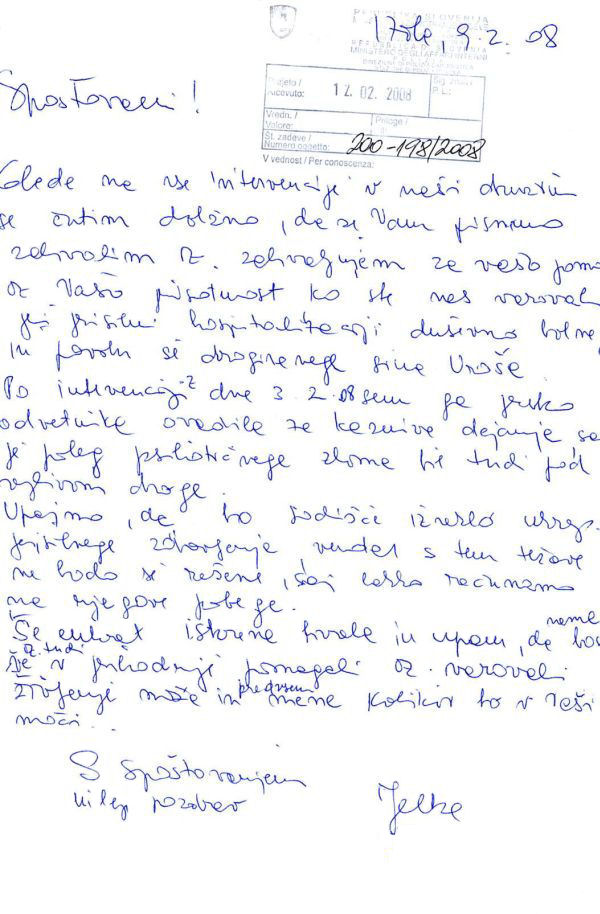 Izola, 9.2.08
REPUBLIKA SLOVENIJA
MINISTERO DEGLI AFFARI INTERNI
Prejeto /
Ricevuto: 12. 02. 2008
Sig. P.L.:
Vredn. /
Valore: Priloge /
Št. zadeve /
Numero oggetto: 200-198/2008
V vednost / Per conoscenza:
Spoštovani!
Glede na vse intervencije v naši družini
se čutim dolžno, da se Vam pismeno
zahvalim oz. zahvaljujem za vašo pomo
oz Vašo prisotnost ko ste nas varoval
pri prisilni hospitalizaciji duševno bolne
in povrhu še drogiranega sina Uroša.
Po intervenciji z dne 3.2.08 sem ga preko
odvetnika ovadila za kazniva dejanja sa
je poleg psihotičnega zloma bil tudi pod
vplivom droge.
Upajmo, da bo sodišče izreklo ukrep
prisilnega zdravljenja vendar s tem težave
ne bodo še rešene, saj lahko računamo
na njegove pobege.
Še enkrat iskrena hvala in upam, da bos
nam
oz. tudi
še v prihodnje pomagali oz. varovali
življenje moža in predvsem mene kolikor bo v Vaši
moči.
S spoštovanjem
in lep pozdrav Jelka